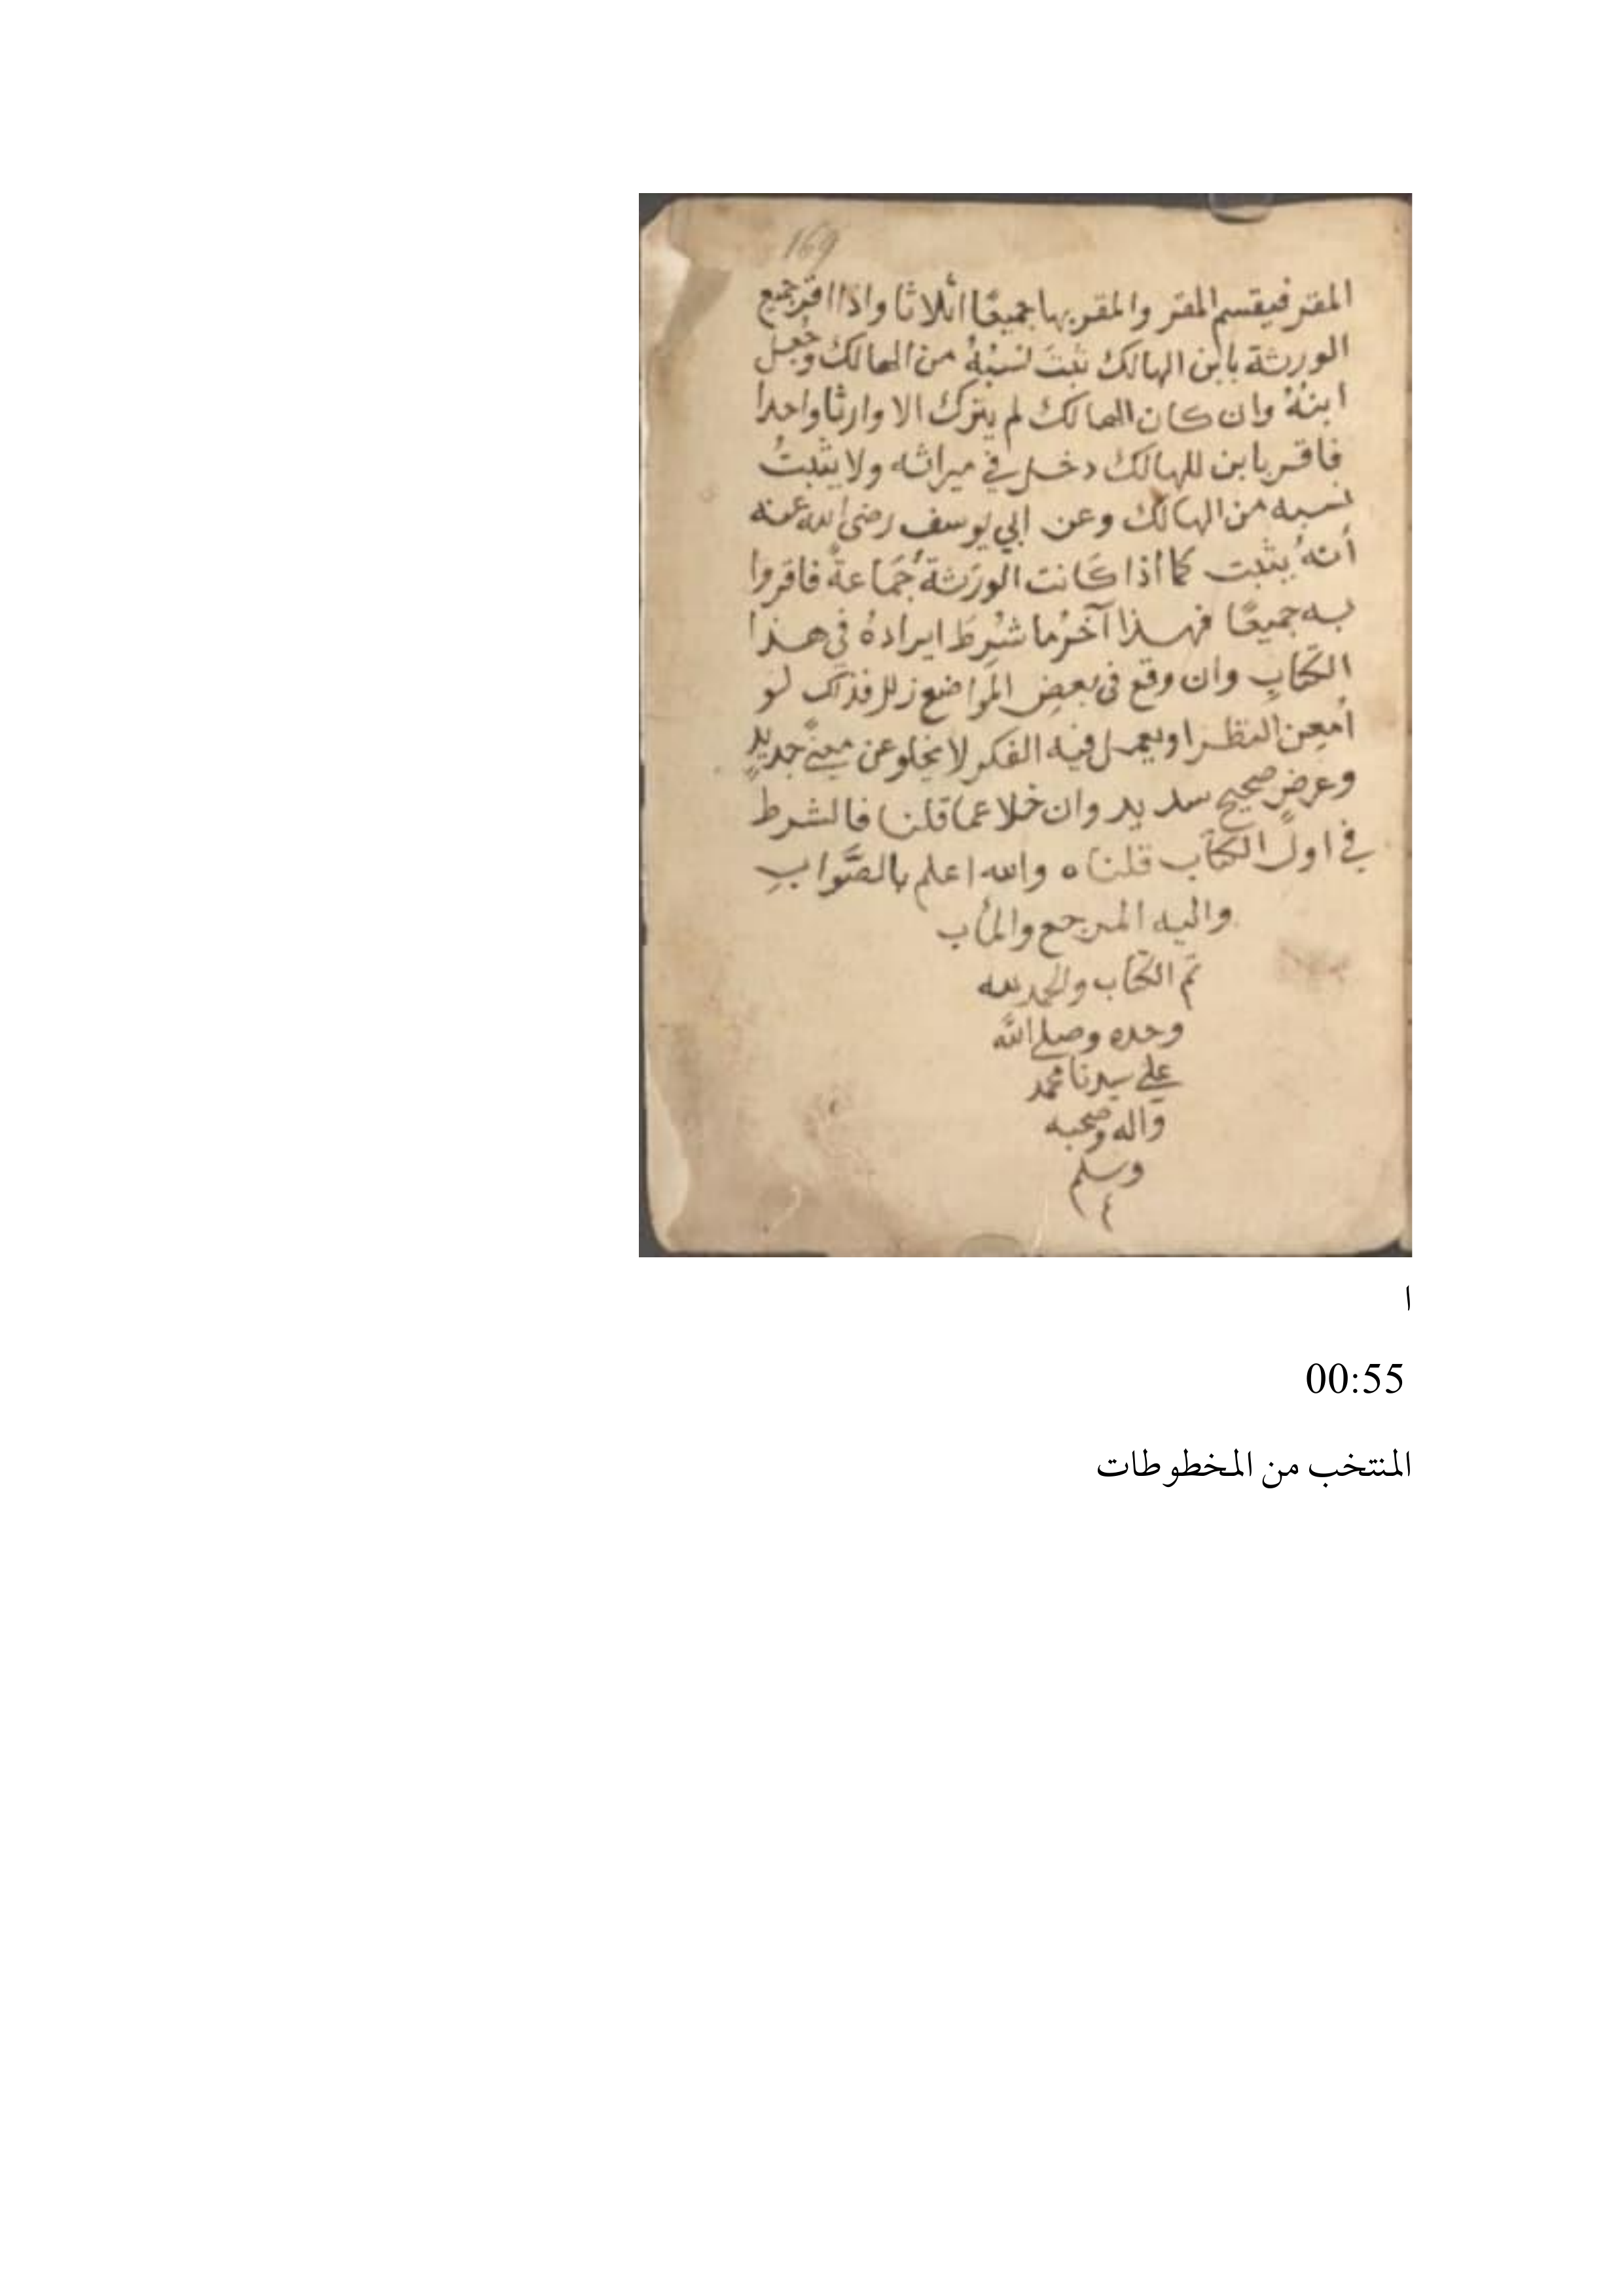 169
المقر فيقسم المقر والمقر بها جميعًا اثلاثا واذا اقر جميع
الورثة بابن الهالك ثبتَ نسبُهُ من الهالك وجُعِل
ابنهُ وان كان الهالك لم يترك الا وارثا واحدا
فاقر بابن للهالك دخل في ميراثه ولا يثبتُ
نسبه من الهالك وعن ابي يوسف رضى الله عنه
أنهُ يثبت كما اذا كَانت الورَثة جُمَاعةً فاقروا
به جميعًا فهذا آخرُ ما شُرِطَ ايرادهُ في هذا
الكتابِ وان وقع في بعضِ المَواضع زلل فذاك لو
أمعِن النظر او يعمل فيه الفكر لا يخلو عن معنًى جديدٍ
وعرضٍ صحيحٍ سديد وان خلا عما قلنا فالشرط
في اول الكتاب قلناه والله اعلم بالصَّوابِ
واليه المرجع والمأب
تم الكتاب والحمد لله
وحده وصلى الله
على سيدنا محمد
واله وصحبه
وسلم
ا
00:55
المنتخب من المخطوطات